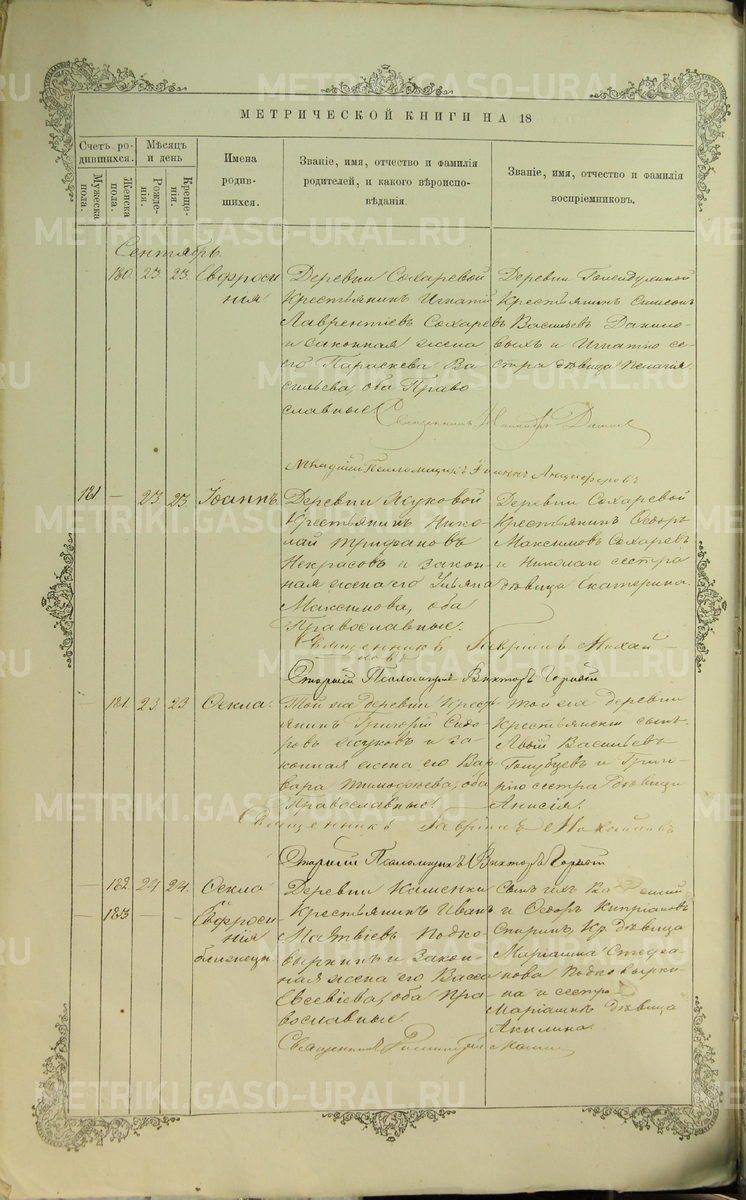 МЕТРИЧЕСКОЙ КНИГИ НА 18
Счетъ ро-
дившихся.
Мужеска
пола.
Женска
пола.
Мѣсяцъ
и день
Рожде-
нія.
Креще-
нія.
Имена
родив-
шихся.
Званіе, имя, отчество и фамилія
родителей, и какого вѣроиспо-
вѣданія.
Званіе, имя, отчество и фамилія
воспріемниковъ.
Сентябрь.
180. 23 23. Евфроси
нія
Деревни Сохаревой
Крестьянинъ Игнатій
Лаврентіевъ Сохаревъ
и законная жена
его Параскева Ва-
сильева, оба Право
славные
Деревни
Крестьянинъ Симеонъ
Васильевъ Данило-
выхъ и Игнатію се-
стра дѣвица Пелагія
Священникъ
Младшій Псаломщикъ Іоаннъ Анциферовъ
181 — 23 23 Іоаннъ.
Деревни Жуковой
Крестьянинъ Нико-
лай Трифановъ
Некрасовъ и закон-
ная жена его Ульяна
Максимова, оба
Православные.
Деревни Сохаревой
Крестьянинъ Ѳедоръ
Максимовъ Сохаревъ
и Николаю сестра
дѣвица Екатерина.
Священникъ Гавріилъ Михай-
ловъ
Старшій Псаломщикъ Викторъ Горныхъ
— 181. 23 23. Ѳекла.
Той же деревни Крест
янинъ Григорій Сидо-
ровъ Жуковъ и за-
конная жена его Вар-
вара Тимофеева, оба
Православные.
Той же деревни
Крестьянскій сынъ
Васильевъ
Голубцевъ и Григо-
рію сестра дѣвица
Анисія.
Священникъ Гавріилъ Михайловъ
Старшій Псаломщикъ Викторъ
— 182 24 24. Ѳекла
и
— 183 — — Евфроси-
нія
близнецы
Деревни Каменки
Крестьянинъ Иванъ
Матвіевъ Подко-
выркинъ и закон-
ная жена его Васса
Евсевіева, оба Пра-
вославные.
и Ѳедоръ Кипріановъ
Спиринъ, Кр. дѣвица
Маріамна Стефа-
нова Подковырки-
на и сестра
Маріамнѣ дѣвица
Акилина.
Священникъ
METRIKI.GASO-URAL.RU